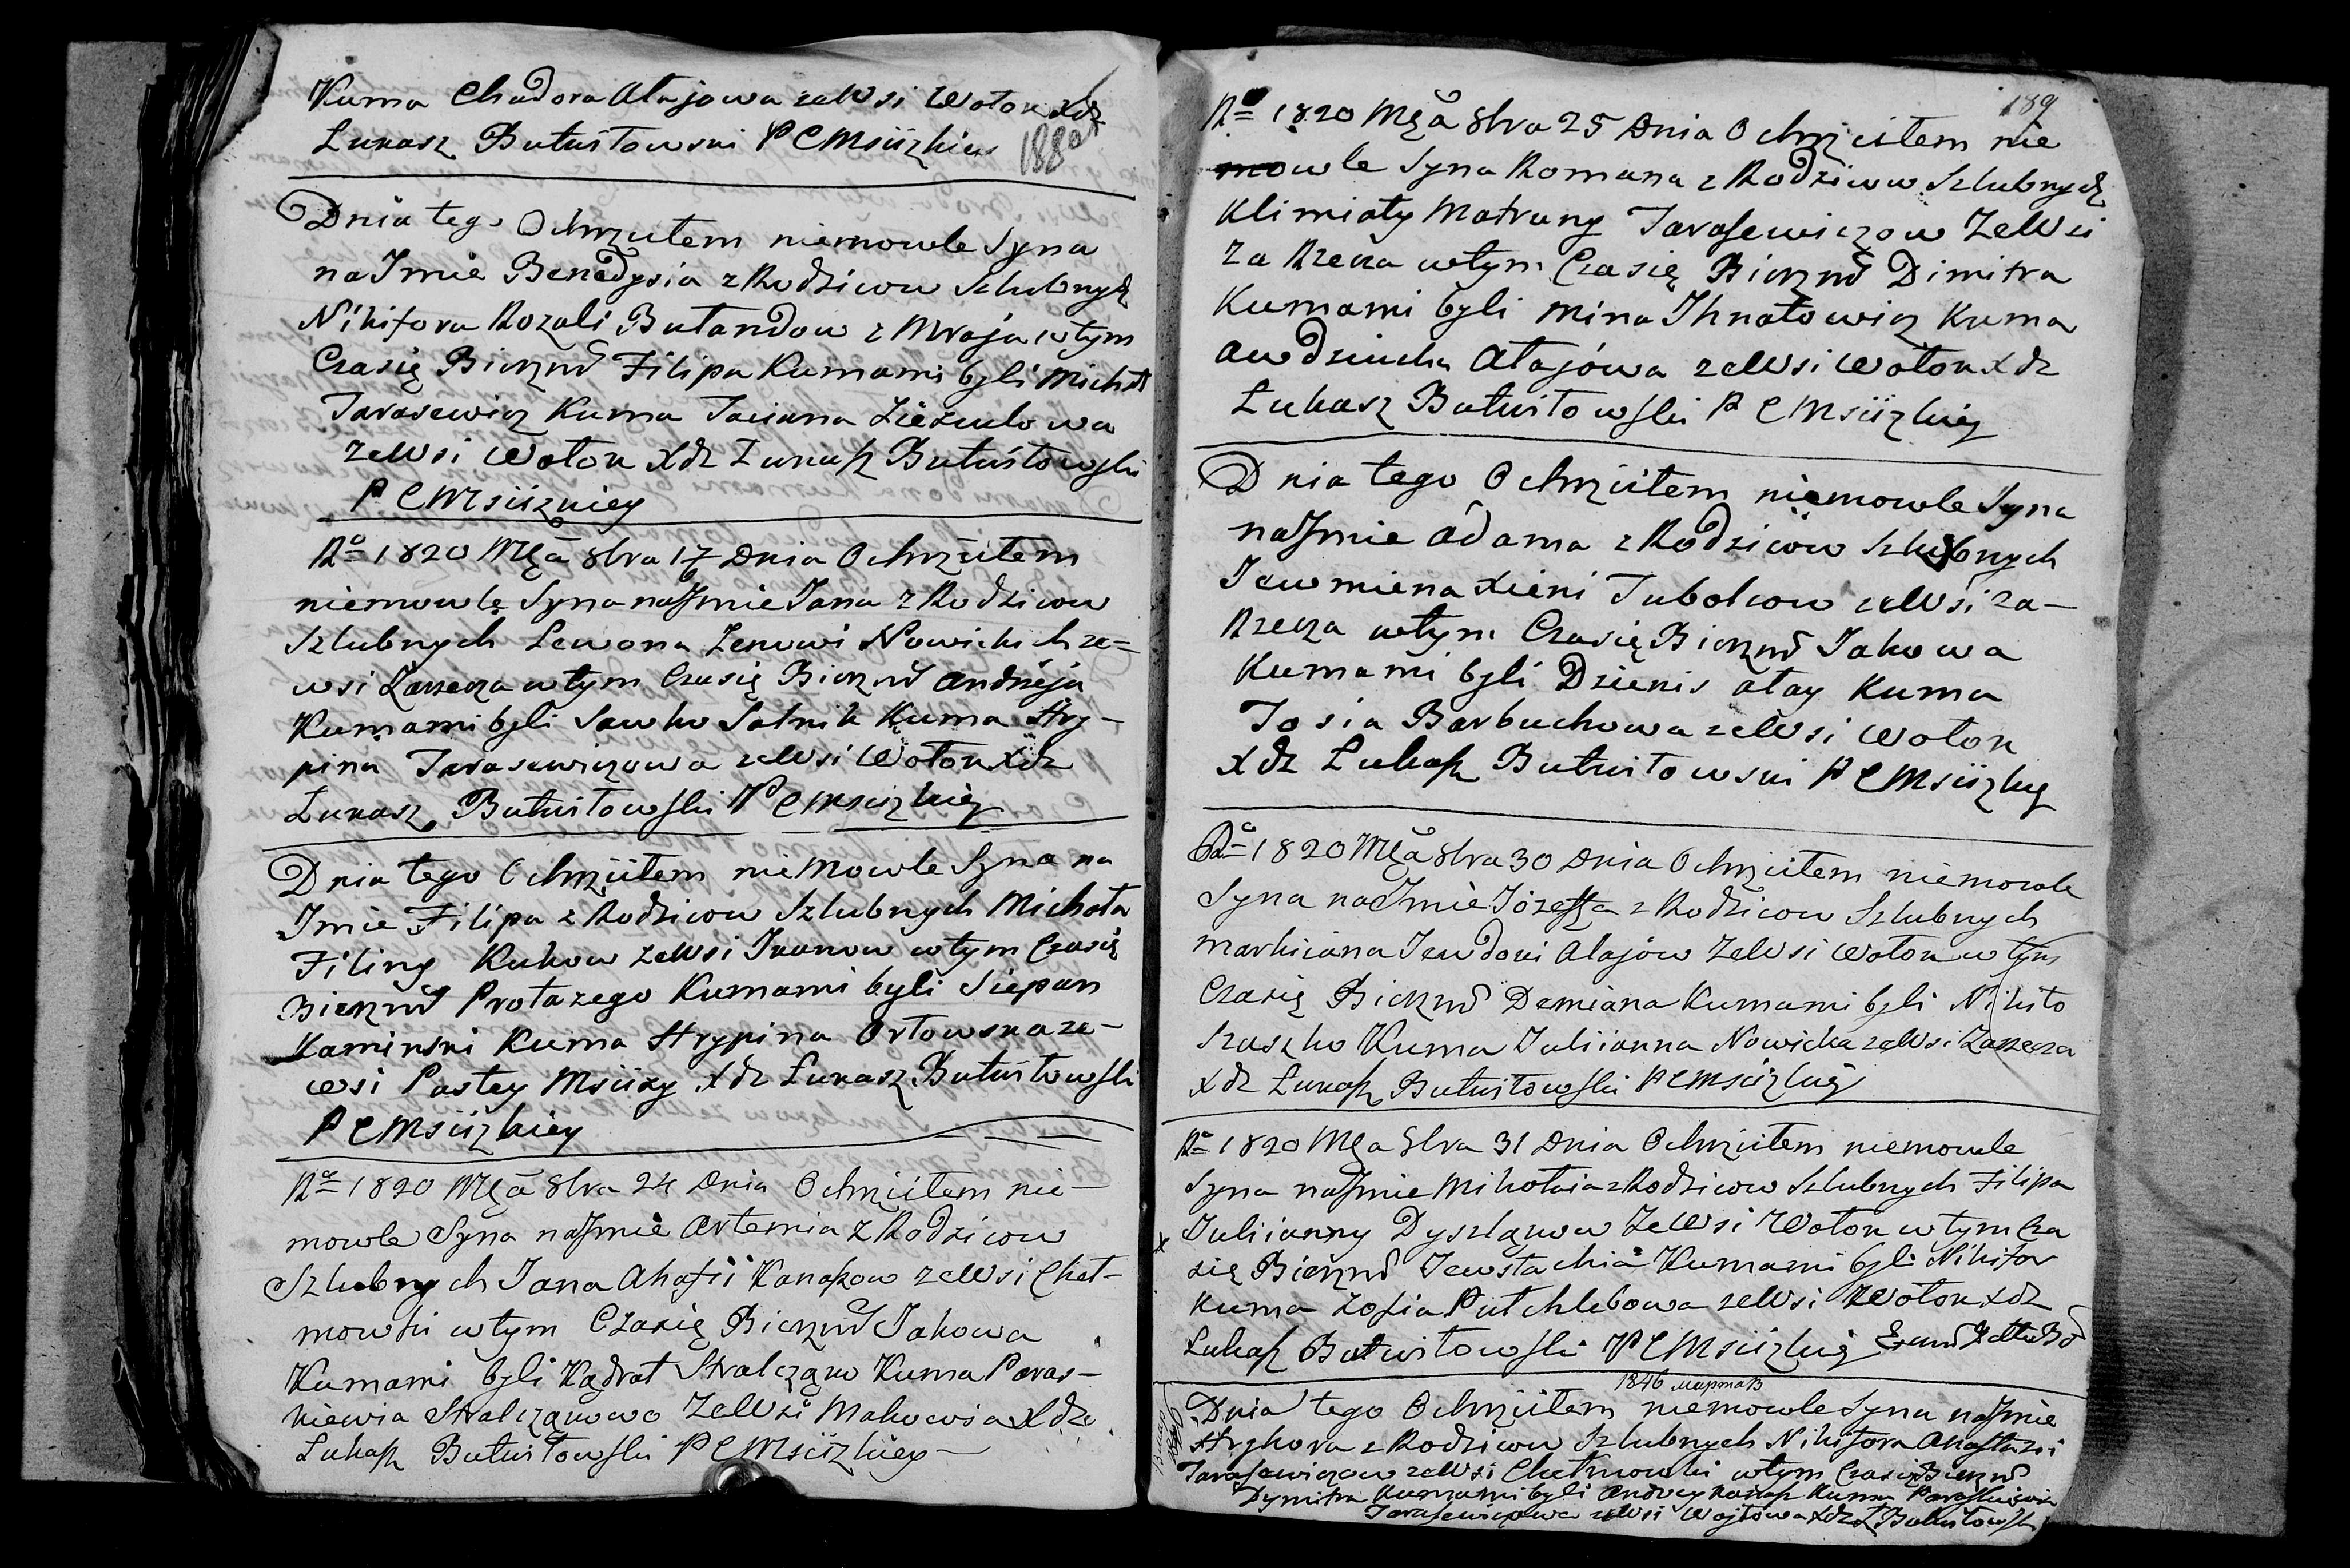 Kuma Chadora Atajowa zeWsi Woton Xdz
Łukasz Butustowski P C Msiizkiey
188 ob
Dnia tego Ochrzcitem niemowle Syna
na Jmie Benedysia z Rodzicow Szlubnych
Nikifora Rozali Butandow z Mraja wtym
Czasię Bierznd Filipa Kumami byli Michał
Tarasewicz Kuma Taciana
zeWsi Woton Xdz Łukasz Butustowski
P C Msiizkiey
Ro 1820 Mcą 8bra 17 Dnia Ochrzcitem
niemowle Syna naJmie Jana z Rodzicow
Szlubnych Lewona Zenowi Nowickich ze=
wsi Zarzecza wtym Czasię Bierznd Andreja
Kumami byli Sawko Satnik Kuma Hry-
pina Tarasewiczowa zeWsi Woton Xdz
Łukasz Butustowski P C Msiizkiey
Dnia tego Ochrzcitem nieMowle Syna na
Jmie Filipa z Rodzicow Szlubnych Michała
Filiny Kukow zeWsi Iwanow wtym Czasię
Bierznd Protazego Kumami byli Siepan
Kaminski Kuma Hrypina Ortowska ze-
wsi Pastey Msiizy Xdz Łukasz Butustowski
P C Msiizkiey
Ro 1820 Mcą 8bra 24 Dnia Ochrzcitem nie-
mowle Syna naJmie Artemia z Rodzicow
Szlubnych Jana Ahafii Kanaszow zeWsi Chet-
mowki wtym Czasię Bierznd Jakowa
Kumami byli Kądrat Stralcząw Kuma Paras-
kiewia Stralcząwowa ZeWsi Makowia Xdz
Łukasz Butustowski P C Msiizkiey
189
Ro 1820 Mcą 8bra 25 Dnia Ochrzcitem nie
mowle Syna Romana z Rodzicow Szlubnych
Klimiaty Matruny Tarasewiczow ZeWsi
Za Rzecza wtym Czasię Bierznd Dimitra
Kumami byli Mina Ihnatowicz Kuma
Awdziucha Atajowa zeWsi Woton Xdz
Łukasz Butustowski P C Msiizkiey
Dnia tego Ochrzcitem niemowle Syna
naJmie Adama z Rodziców Szlubnych
Jawmiena Xieni Tubolcow zeWsi Za-
Rzecza wtym Czasię Bierznd Jakowa
Kumami byli Dzienis Atay Kuma
Tosia Barbuchowa zeWsi Woton
Xdz Łukasz Butustowski P C Msiizkiey
Ro 1820 Mcą 8bra 30 Dnia Ochrzcitem niemowle
Syna naJmie Józeffa z Rodzicow Szlubnych
Markiana Jewdoni Atajów ZeWsi Woton wtym
Czasię Bierznd Demiana Kumami byli Nikito
Szaszko Kuma Juliianna Nowicka zeWsi Zarzecza
Xdz Łukasz Butustowski P C Msiizkiey
Ro 1820 Mca 8bra 31 Dnia Ochrzcitem niemowle
Syna naJmie Mikołaia z Rodzicow Szlubnych Filipa
x Juliianny Dyszląwow ZeWsi Woton wtym Cza
się Bierznd Jewstachia Kumami byli Nikifor
Kuma Zofia Putchlebowa zeWsi Woton Xdz
Łukasz Butustowski P C Msiizkiey
1846 марта
Dnia tego Ochrzcitem niemowle Syna naJmie
Hryhora z Rodzicow Szlubnych Nikifora Anastazii
Tarasewiczow zeWsi Chetmowki wtym Czasię Bierznd
Dymitra Kumami byli Andrey Kanasz Kuma Paraskiewia
Tarasewiczowa zeWsi Wojtowa Xdz Ł Butustowski